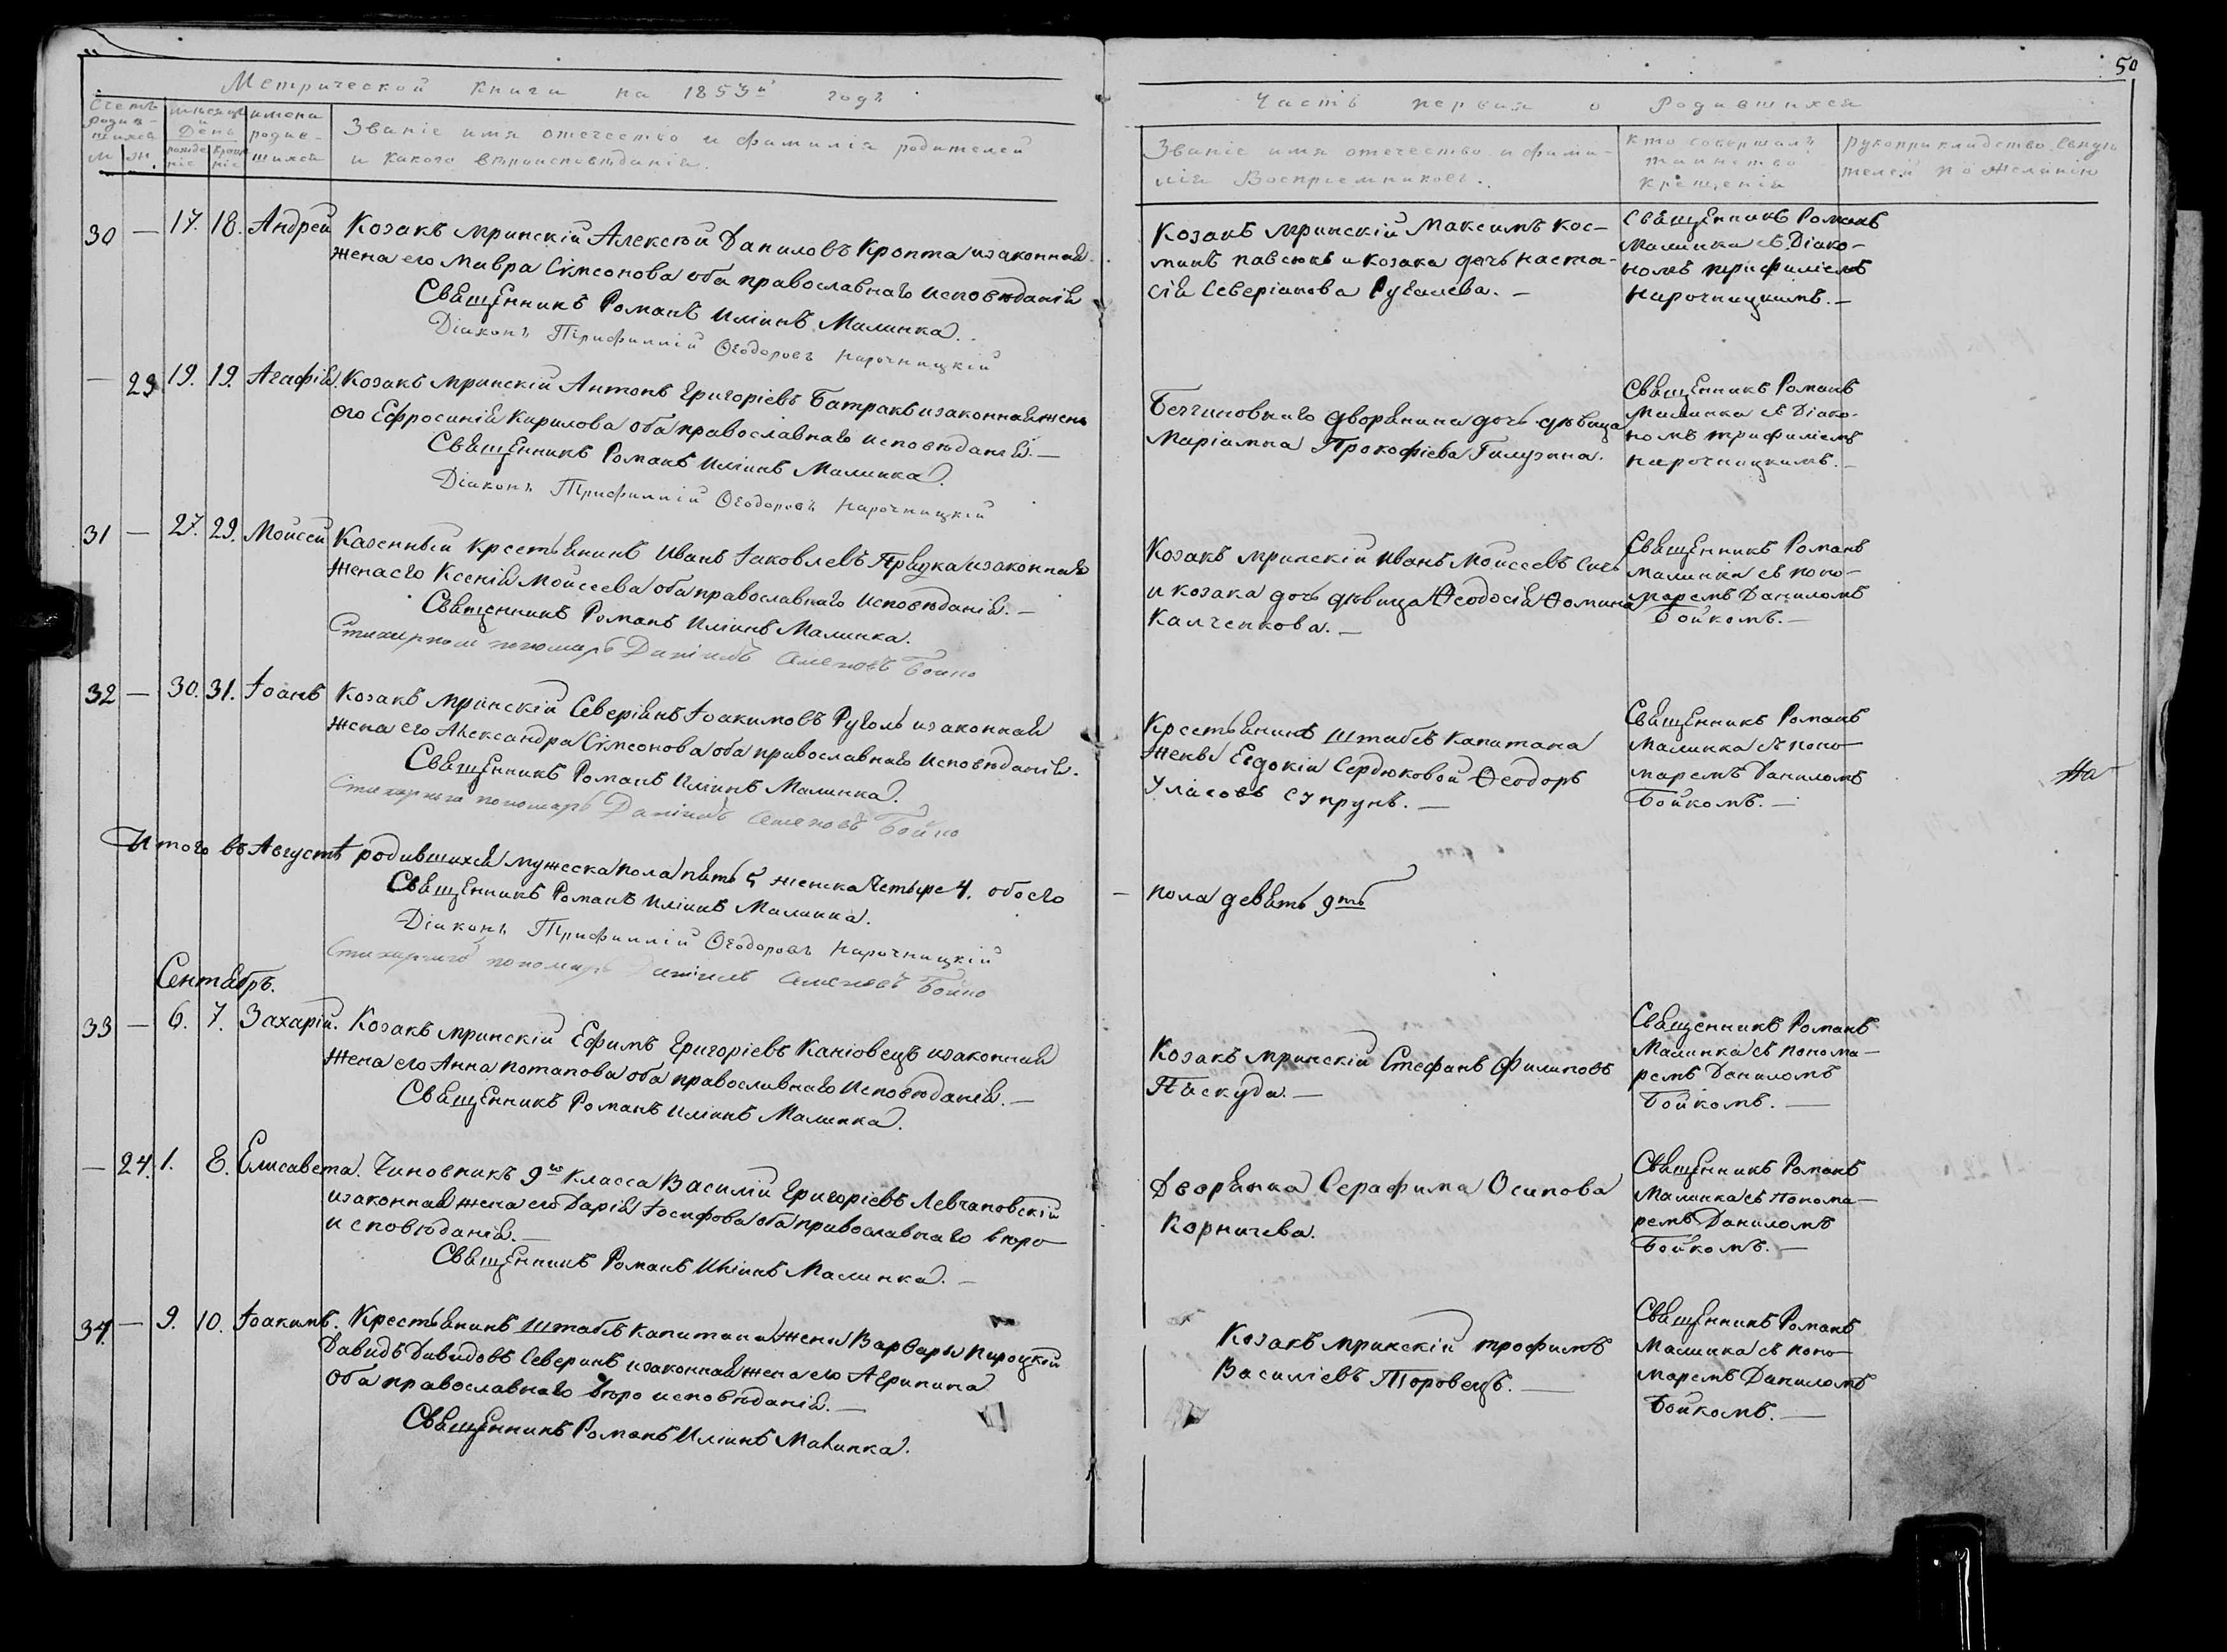 50
Метрической книги на 1853й годъ
Часть первая о родившихся
Счетъ родив-шихся
м ж.
мѣсяцъ и День
рожде ніе
Креще ніе
имена родив-шихся
Званіе имя отечество и фамилія родителей
и какого вѣроисповѣданія.
Званіе имя отечество и фами-
лія Воспріемниковъ.
кто совершалъ
таинство
крещенія
рукоприкладство свидѣ
телей по желанію
30 — 17. 18. Андрей
Козакъ мринскій Алексѣй Даниловъ Кропта изаконная
жена его Мавра Сімеонова оба православнаго исповѣданія
Священникъ Романъ Иліинъ Малинка.
Діаконъ Трифиллій Ѳеодоровъ Нарочницкій
Козакъ мринскій Максимъ Кос-
минъ павсюкъ и козака дочь наста-
сія Северіанова Ругалева. —
Священникъ Романъ
Малинка съ Діако-
номъ трифиліемъ
Нарочницкимъ. —
— 23 19. 19. Агафія.
Козакъ мринскій Антонъ Григоріевъ Батракъ изаконная жена
его Ефросинія Кирилова оба православнаго исповѣданія. —
Священникъ Романъ Иліинъ Малинка.
Діаконъ Трифиллій Ѳеодоровъ Нарочницкій
Безчиновнаго дворянина дочь дѣвица
Маріамна Прокофіева
Священникъ Романъ
Малинка съ Діако-
номъ трифиліемъ
нарочницкимъ. —
31 — 27. 29. Моисей
Казенный крестьянинъ Иванъ Іаковлевъ Прядка изаконная
жена его Ксенія Моисеева оба православнаго исповѣданія. —
Священникъ Романъ Иліинъ Малинка.
Стихарной пономарь Даніилъ Семеновъ Бойко
Козакъ мринскій иванъ Моисеевъ
и козака дочь дѣвица Ѳеодосія Ѳомина
Калченкова. —
Священникъ Романъ
малинка съ поно-
маремъ Даниломъ
Бойкомъ. —
32 — 30. 31. Іоанъ
Козакъ мринскій Северіянъ Іоакимовъ Руголь изаконная
жена его Александра Сімеонова оба православнаго исповѣданія.
Священникъ Романъ Иліинъ Малинка.
Стихарной пономарь Даніилъ Семеновъ Бойко
Крестьянинъ Штабсъ Капитана
жены Евдокіи Сердюковой Ѳеодоръ
Уласовъ супрунъ. —
Священникъ Романъ
Малинка съ поно-
маремъ Даниломъ
Бойкомъ. —
На
Итого въ Августѣ родившихся мужеска пола пять 5 женска четыре 4. обоего
— пола девять 9ть
Священникъ Романъ Иліинъ Малинка.
Діаконъ Трифиллій Ѳеодоровъ Нарочницкій
Стихарной пономарь Даніилъ Семеновъ Бойко
Сентябрь.
33 — 6. 7. Захарій.
Козакъ мринскій Ефимъ Григоріевъ Каніовецъ изаконная
жена его Анна потапова оба православнаго исповѣданія. —
Священникъ Романъ Иліинъ Малинка.
Козакъ мринскій Стефанъ Филиповъ
Паскуда. —
Священникъ Романъ
Малинка съ понома-
ремъ Даниломъ
Бойкомъ. —
— 24. 1. 8. Елисавета.
Чиновникъ 9го класса Василій Григоріевъ Левчановскій
изаконная жена его Дарія Іосифова оба православнаго вѣро-
исповѣданія. —
Священникъ Романъ Иліинъ Малинка. —
Дворянка Серафима Осипова
Корничева.
Священникъ Романъ
Малинка съ понома-
ремъ Даниломъ
Бойкомъ. —
34. — 9. 10. Іоакимъ.
Крестьянинъ Штабсъ капитана жены Варвары Пироцкой
Давидъ Давидовъ Северинъ изаконная жена его Агрипина
Оба православнаго вѣро исповѣданія. —
Священникъ Романъ Иліинъ Малинка.
Козакъ мринскій трофимъ
Василіевъ Торовецъ. —
Священникъ Романъ
Малинка съ поно-
маремъ Даниломъ
Бойкомъ. —